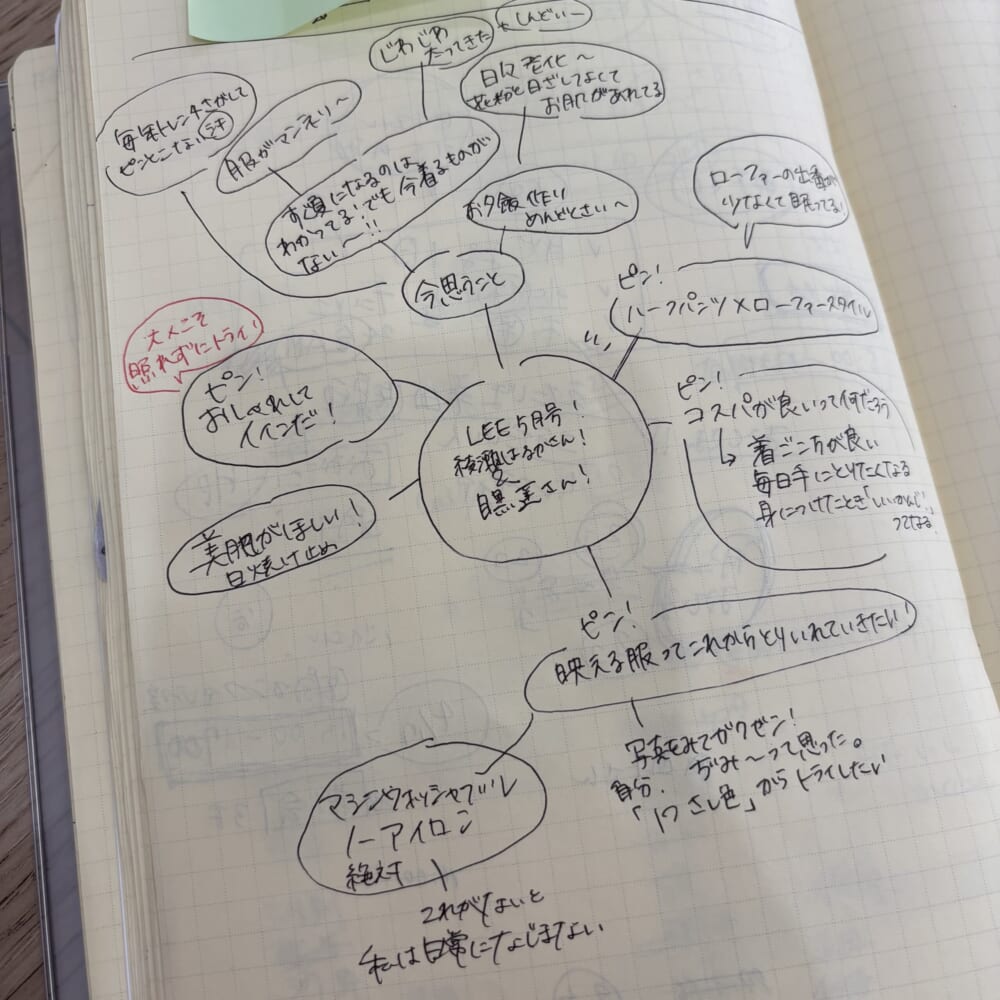 じわじわ
太ってきた
しんどいー
日々老化〜
花粉と日ざしつよくて
お肌があれてる
毎年トレンチさがして
ピンとこない
服がマンネリ〜
お得になるのは
わかってる!でも今着るものが
ない〜!!
お夕飯作り
めんどくさい〜
今思うこと
ローファーの出番が
少なくて眠ってる!
ピン!
ハーフパンツ×ローファースタイル
大人こそ
照れずにトライ!
ピン!
おしゃれして
イイんだ!
LEE5月号!
綾瀬はるかさん!
&
黒さん!
ピン!
コスパが良いって何だろう
↳着ごこ方が良い
毎日手にとりたくなる
身につけたとき「いいかんじ」
ってなる
美肌がほしい!
日焼け止め
ピン!
映える服ってこれからとりいれていきたい!
写真をみてガクゼン!
自分、ぢみ〜って思った。
「さし色」からトライしたい
マシンウォッシャブル
ノーアイロン
絶対
これがないと
私は日常になじまない